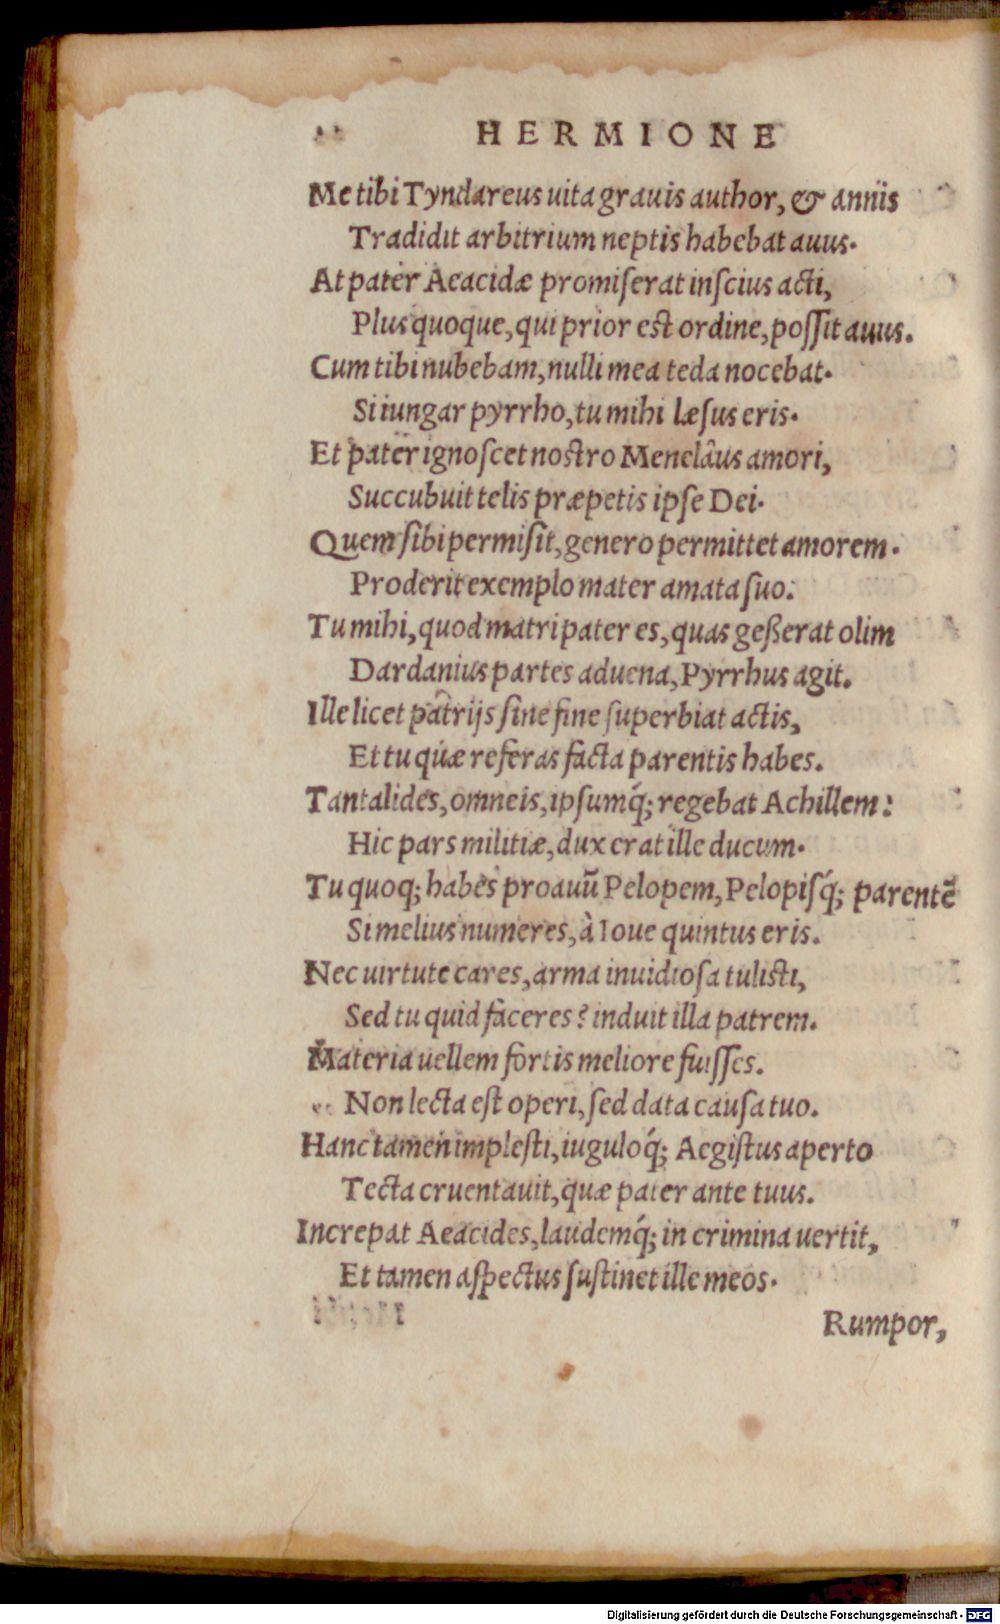 HERMIONE
Me tibi Tyndareus uita grauis author, & annis
Tradidit arbitrium neptis habebat auus.
At pater Aeacidæ promiserat inscius acti,
Plus quoque, qui prior est ordine, possit auus.
Cum tibi nubebam, nulli mea teda nocebat.
Si iungar pyrrho, tu mihi læsus eris.
Et pater ignoscet nostro Menelâus amori,
Succubuit telis præpetis ipse Dei.
Quem sibi permisit, genero permittet amorem.
Proderit exemplo mater amata suo.
Tu mihi, quod matri pater es, quas geßerat olim
Dardanius partes aduena, Pyrrhus agit.
Ille licet patrijs sine fine superbiat actis,
Et tu quæ referas facta parentis habes.
Tantalides, omneis, ipsumq́; regebat Achillem:
Hic pars militiæ, dux erat ille ducum.
Tu quoq; habes proauũ Pelopem, Pelopisq́; parentẽ
Si melius numeres, à Ioue quintus eris.
Nec uirtute cares, arma inuidiosa tulisti,
Sed tu quid faceres? induit illa patrem.
Materia uellem fortis meliore fuisses.
Non lecta est operi, sed data causa tuo.
Hanc tamen implesti, iuguloq́; Aegistus aperto
Tecta cruentauit, quæ pater ante tuus.
Increpat Aeacides, laudemq́; in crimina uertit,
Et tamen aspectus sustinet ille meos.
Rumpor,
Digitalisierung gefördert durch die Deutsche Forschungsgemeinschaft - DFG